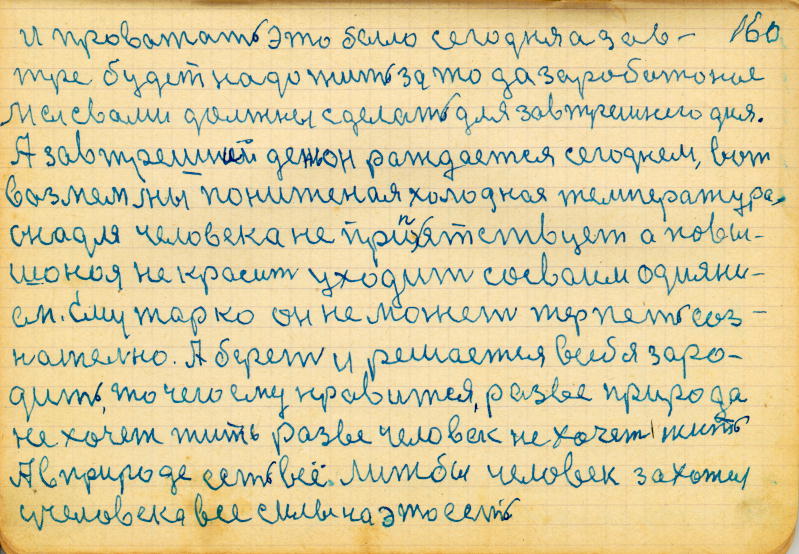 и проватать это было сегодня а зав- 160
тре будет надо жить за то да заработоное
Мы свами должны сделать для завтрешнего дня.
А завтрешней день он раждается сегоднем, вот
возмем мы пониженая холодная температура,
она для человека не припятствует а повы-
шоная не красит уходит соеваим одияни-
ем. Ему жарко он не может терпеть соз-
нателно. А берет и решается в себя заро-
дить, то чего ему нравится, разве природа
не хочет жить разве человек не хочет жить
А в природе есть всё. Лижбы человек захотел
учеловека все силы на это есть